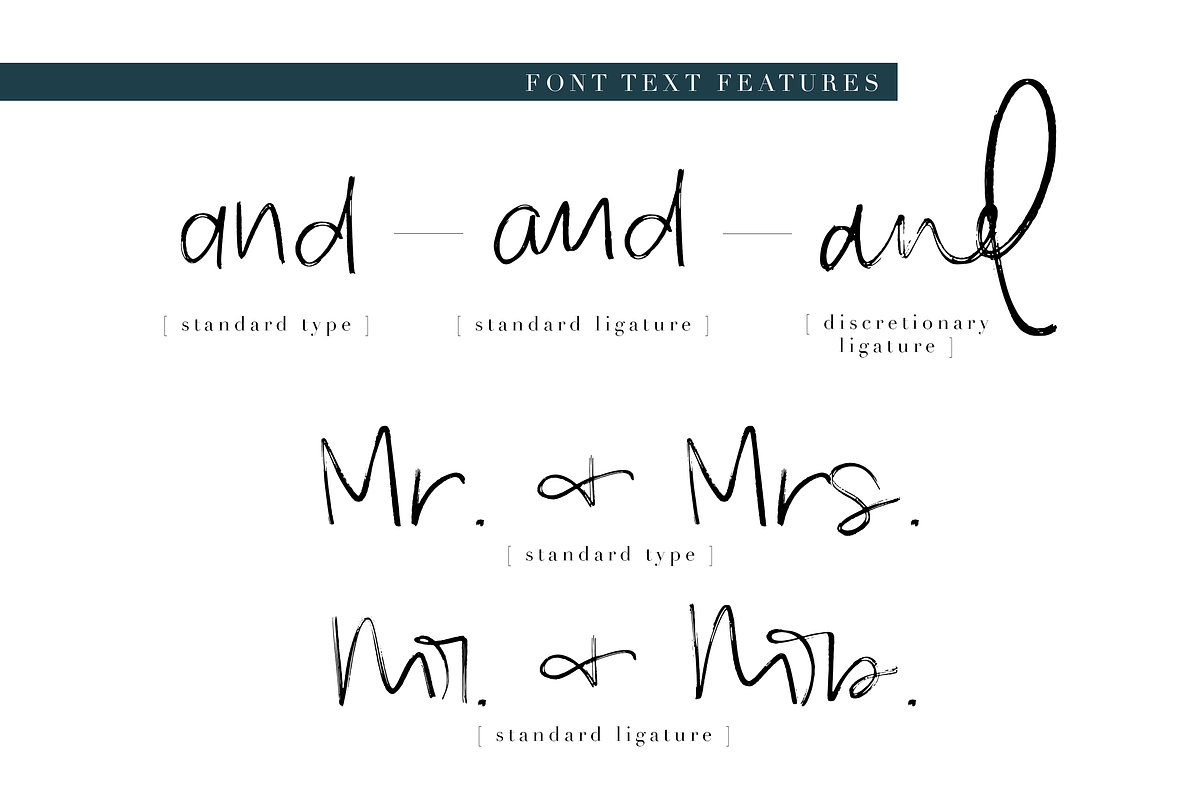 FONT TEXT FEATURES
and — and — and
[ standard type ] [ standard ligature ] [ discretionary
ligature ]
Mr. & Mrs.
[ standard type ]
Mr. & Mrs.
[ standard ligature ]